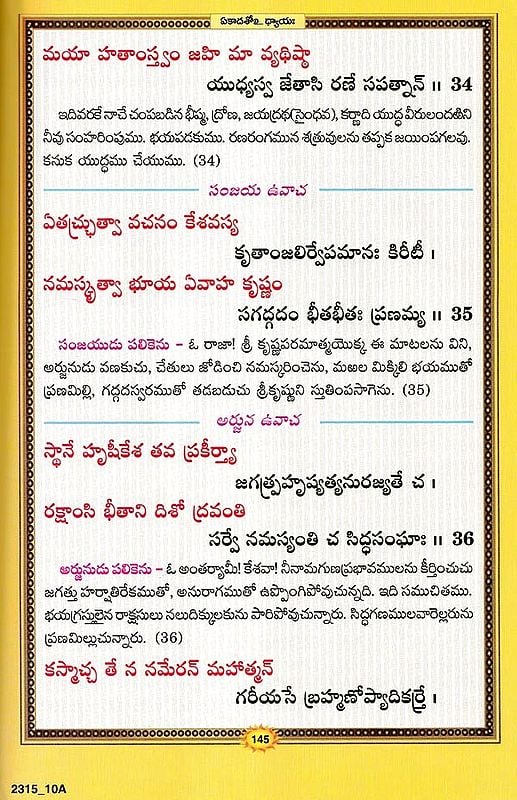 ఏకాదశోఽధ్యాయః
మయా హతాంస్త్వం జహి మా వ్యథిష్ఠా
యుధ్యస్వ జేతాసి రణే సపత్నాన్ ॥ 34
ఇదివరకే నాచే చంపబడిన భీష్మ, ద్రోణ, జయద్రథ(సైంధవ), కర్ణాది యుద్ధవీరులందఱిని
నీవు సంహరింపుము. భయపడకుము. రణరంగమున శత్రువులను తప్పక జయింపగలవు.
కనుక యుద్ధము చేయుము. (34)
సంజయ ఉవాచ
ఏతచ్ఛ్రుత్వా వచనం కేశవస్య
కృతాంజలిర్వేపమానః కిరీటీ ।
నమస్కృత్వా భూయ ఏవాహ కృష్ణం
సగద్గదం భీతభీతః ప్రణమ్య ॥ 35
సంజయుడు పలికెను – ఓ రాజా! శ్రీ కృష్ణపరమాత్మయొక్క ఈ మాటలను విని,
అర్జునుడు వణకుచు, చేతులు జోడించి నమస్కరించెను, మఱల మిక్కిలి భయముతో
ప్రణమిల్లి, గద్గదస్వరముతో తడబడుచు శ్రీకృష్ణుని స్తుతింపసాగెను. (35)
అర్జున ఉవాచ
స్థానే హృషీకేశ తవ ప్రకీర్త్యా
జగత్ప్రహృష్యత్యనురజ్యతే చ ।
రక్షాంసి భీతాని దిశో ద్రవంతి
సర్వే నమస్యంతి చ సిద్ధసంఘాః ॥ 36
అర్జునుడు పలికెను – ఓ అంతర్యామీ! కేశవా! నీనామగుణప్రభావములను కీర్తించుచు
జగత్తు హర్షాతిరేకముతో, అనురాగముతో ఉప్పొంగిపోవుచున్నది. ఇది సముచితము.
భయగ్రస్తులైన రాక్షసులు నలుదిక్కులకును పారిపోవుచున్నారు. సిద్ధగణములవారెల్లరును
ప్రణమిల్లుచున్నారు. (36)
కస్మాచ్చ తే న నమేరన్ మహాత్మన్
గరీయసే బ్రహ్మణోప్యాదికర్త్రే ।
145
2315_10A